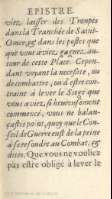 EPISTRE.
viez, laisser des Troupes
dans la Tranchée de Saint
Omer, & dans les postes que
vous aviez gagnez, au-
tour de cette Place. Cepen-
dant voyant la necessité, ou
de combattre, ou d'estre con-
traint à lever le Siege que
vous aviez, si heureusement
commencé, vous ne balan-
çastes point, quoy que le Con-
seil de Guerre eust de la peine
à se resoudre au Combat, &
distes, Que vous ne vouliez
pas estre obligé à lever le